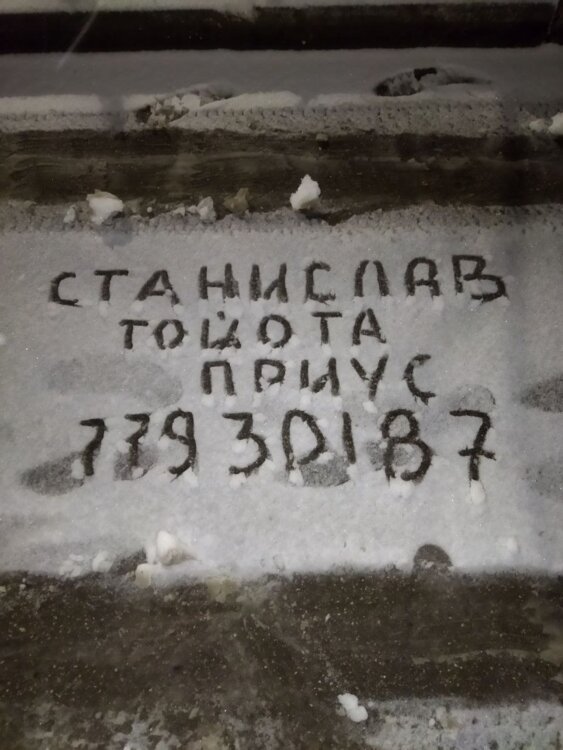 СТАНИСЛАВ
ТОЙОТА
ПРИУС
779 30187